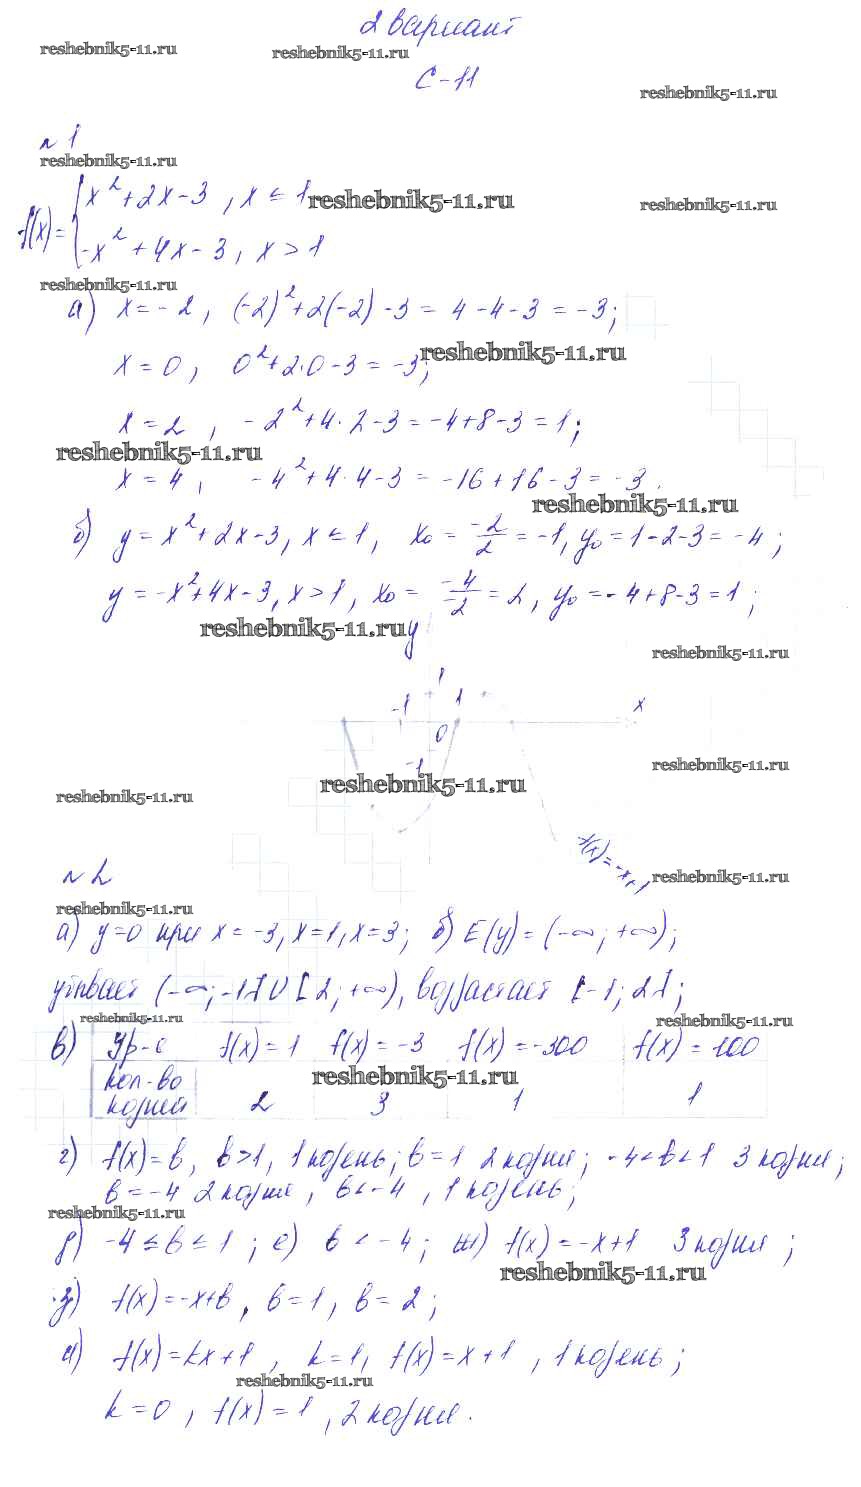 2 вариант
reshebnik5-11.ru reshebnik5-11.ru
С-11
reshebnik5-11.ru
№ 1
reshebnik5-11.ru
x²+2x-3 , x ≤ 1 reshebnik5-11.ru reshebnik5-11.ru
f(x)=
-x²+4x-3, x > 1
reshebnik5-11.ru
а) x=-2, (-2)²+2(-2)-3 = 4-4-3 = -3;
reshebnik5-11.ru
x=0, 0²+2·0-3 = -3;
x=2, -2²+4·2-3=-4+8-3=1;
reshebnik5-11.ru
x=4, -4²+4·4-3 = -16+16-3=-3.
reshebnik5-11.ru
б) y=x²+2x-3, x ≤ 1, x₀ = -2/2 = -1, y₀=1-2-3=-4;
y=-x²+4x-3, x>1, x₀= -4/-2 = 2, y₀=-4+8-3=1;
reshebnik5-11.ru y
reshebnik5-11.ru
1
-1 1 x
0
-1 reshebnik5-11.ru
reshebnik5-11.ru
reshebnik5-11.ru
f(x)=-x+1
№ 2 reshebnik5-11.ru
reshebnik5-11.ru
а) y=0 при x=-3, x=1, x=3; б) E(y)=(-∞;+∞);
убывает (-∞;-1]U[2;+∞), возрастает [-1;2];
reshebnik5-11.ru reshebnik5-11.ru
в) Ур-е f(x)=1 f(x)=-3 f(x)=-300 f(x)=100
кол-во reshebnik5-11.ru
корней 2 3 1 1
г) f(x)=b, b>1, 1 корень; b=1 2 корня; -4<b<1 3 корня;
b=-4 2 корня, b<-4, 1 корень;
reshebnik5-11.ru
д) -4≤b≤1; е) b<-4; ж) f(x)=-x+1 3 корня;
reshebnik5-11.ru
з) f(x)=-x+b, b=1, b=2;
и) f(x)=kx+1, k=1, f(x)=x+1, 1 корень;
reshebnik5-11.ru
k=0, f(x)=1, 2 корня.